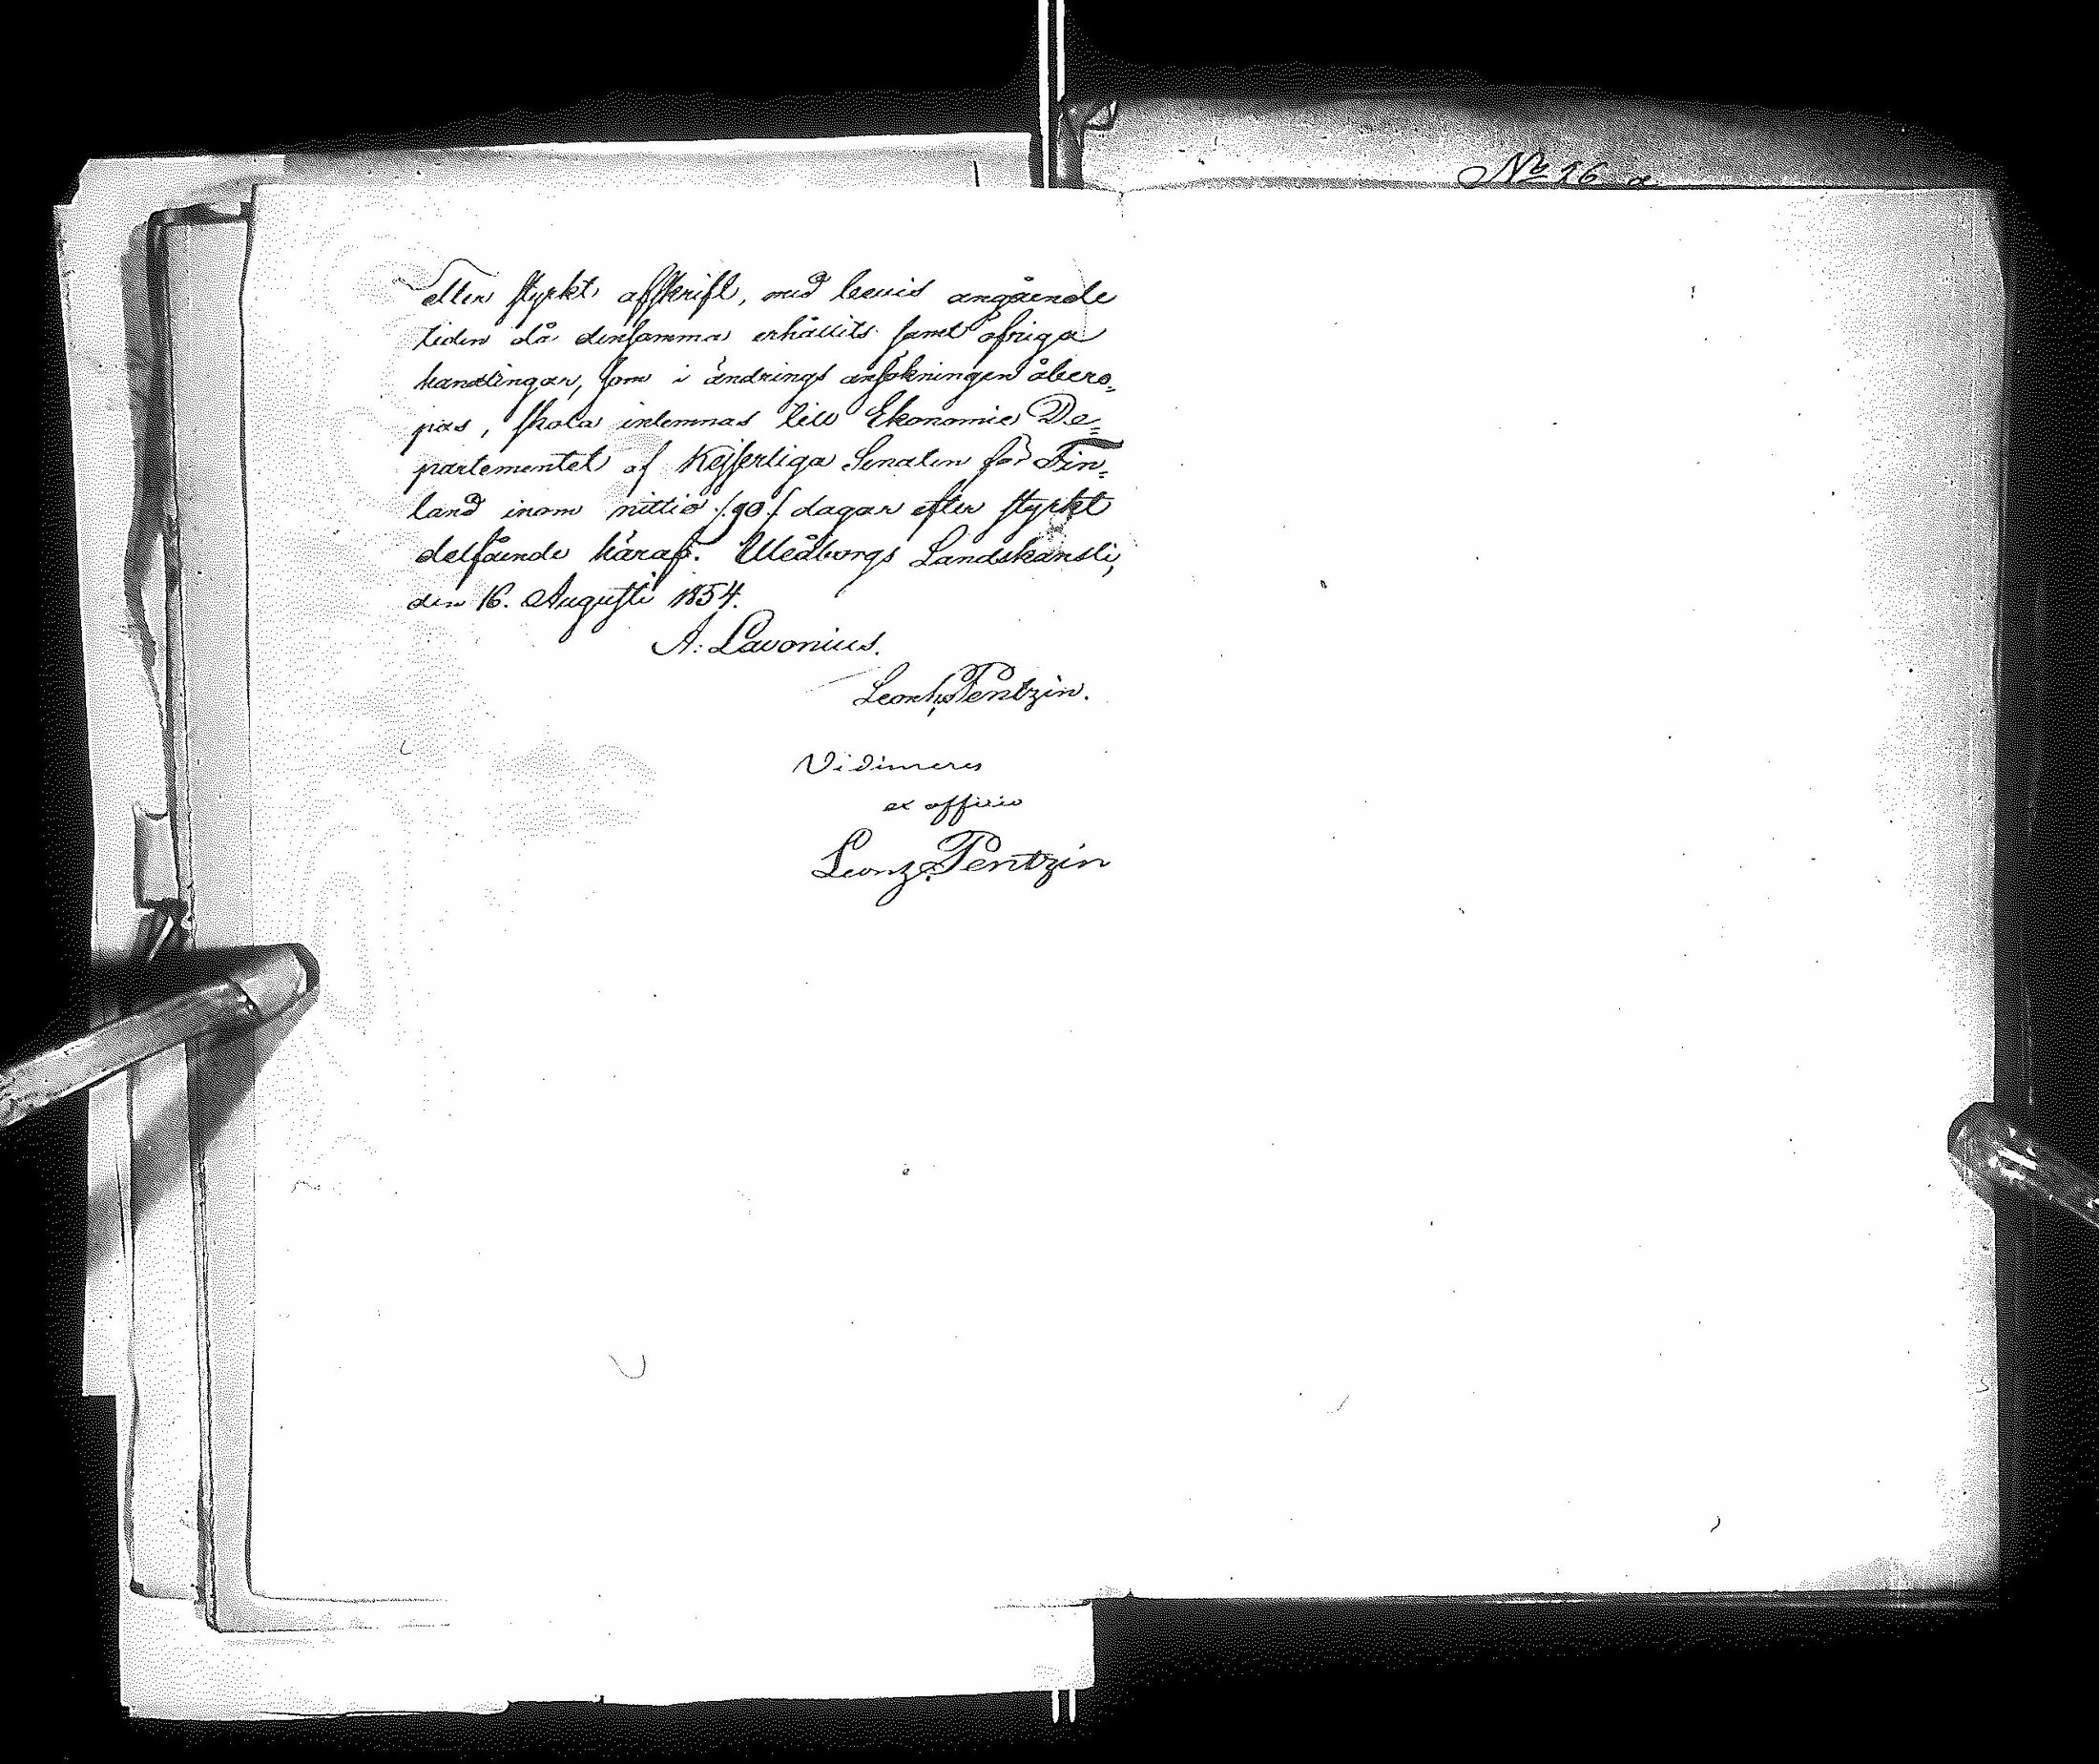 No 16 a
eller styrkt afskrift, med bevis angående
tiden då densamma erhållits samt öfriga
handlingar, som i ändrings ansökningen åbero-
pas, skola inlemnas till Ekonomie De-
partementet af Kejserliga Senaten för Fin-
land inom nittio /:90:/ dagar efter styrkt
delfående häraf. Uleåborgs Landskansli,
den 16. Augusti 1854.
A: Lavonius.
Pentzin.
Vidimeres
ex officio
Pentzin